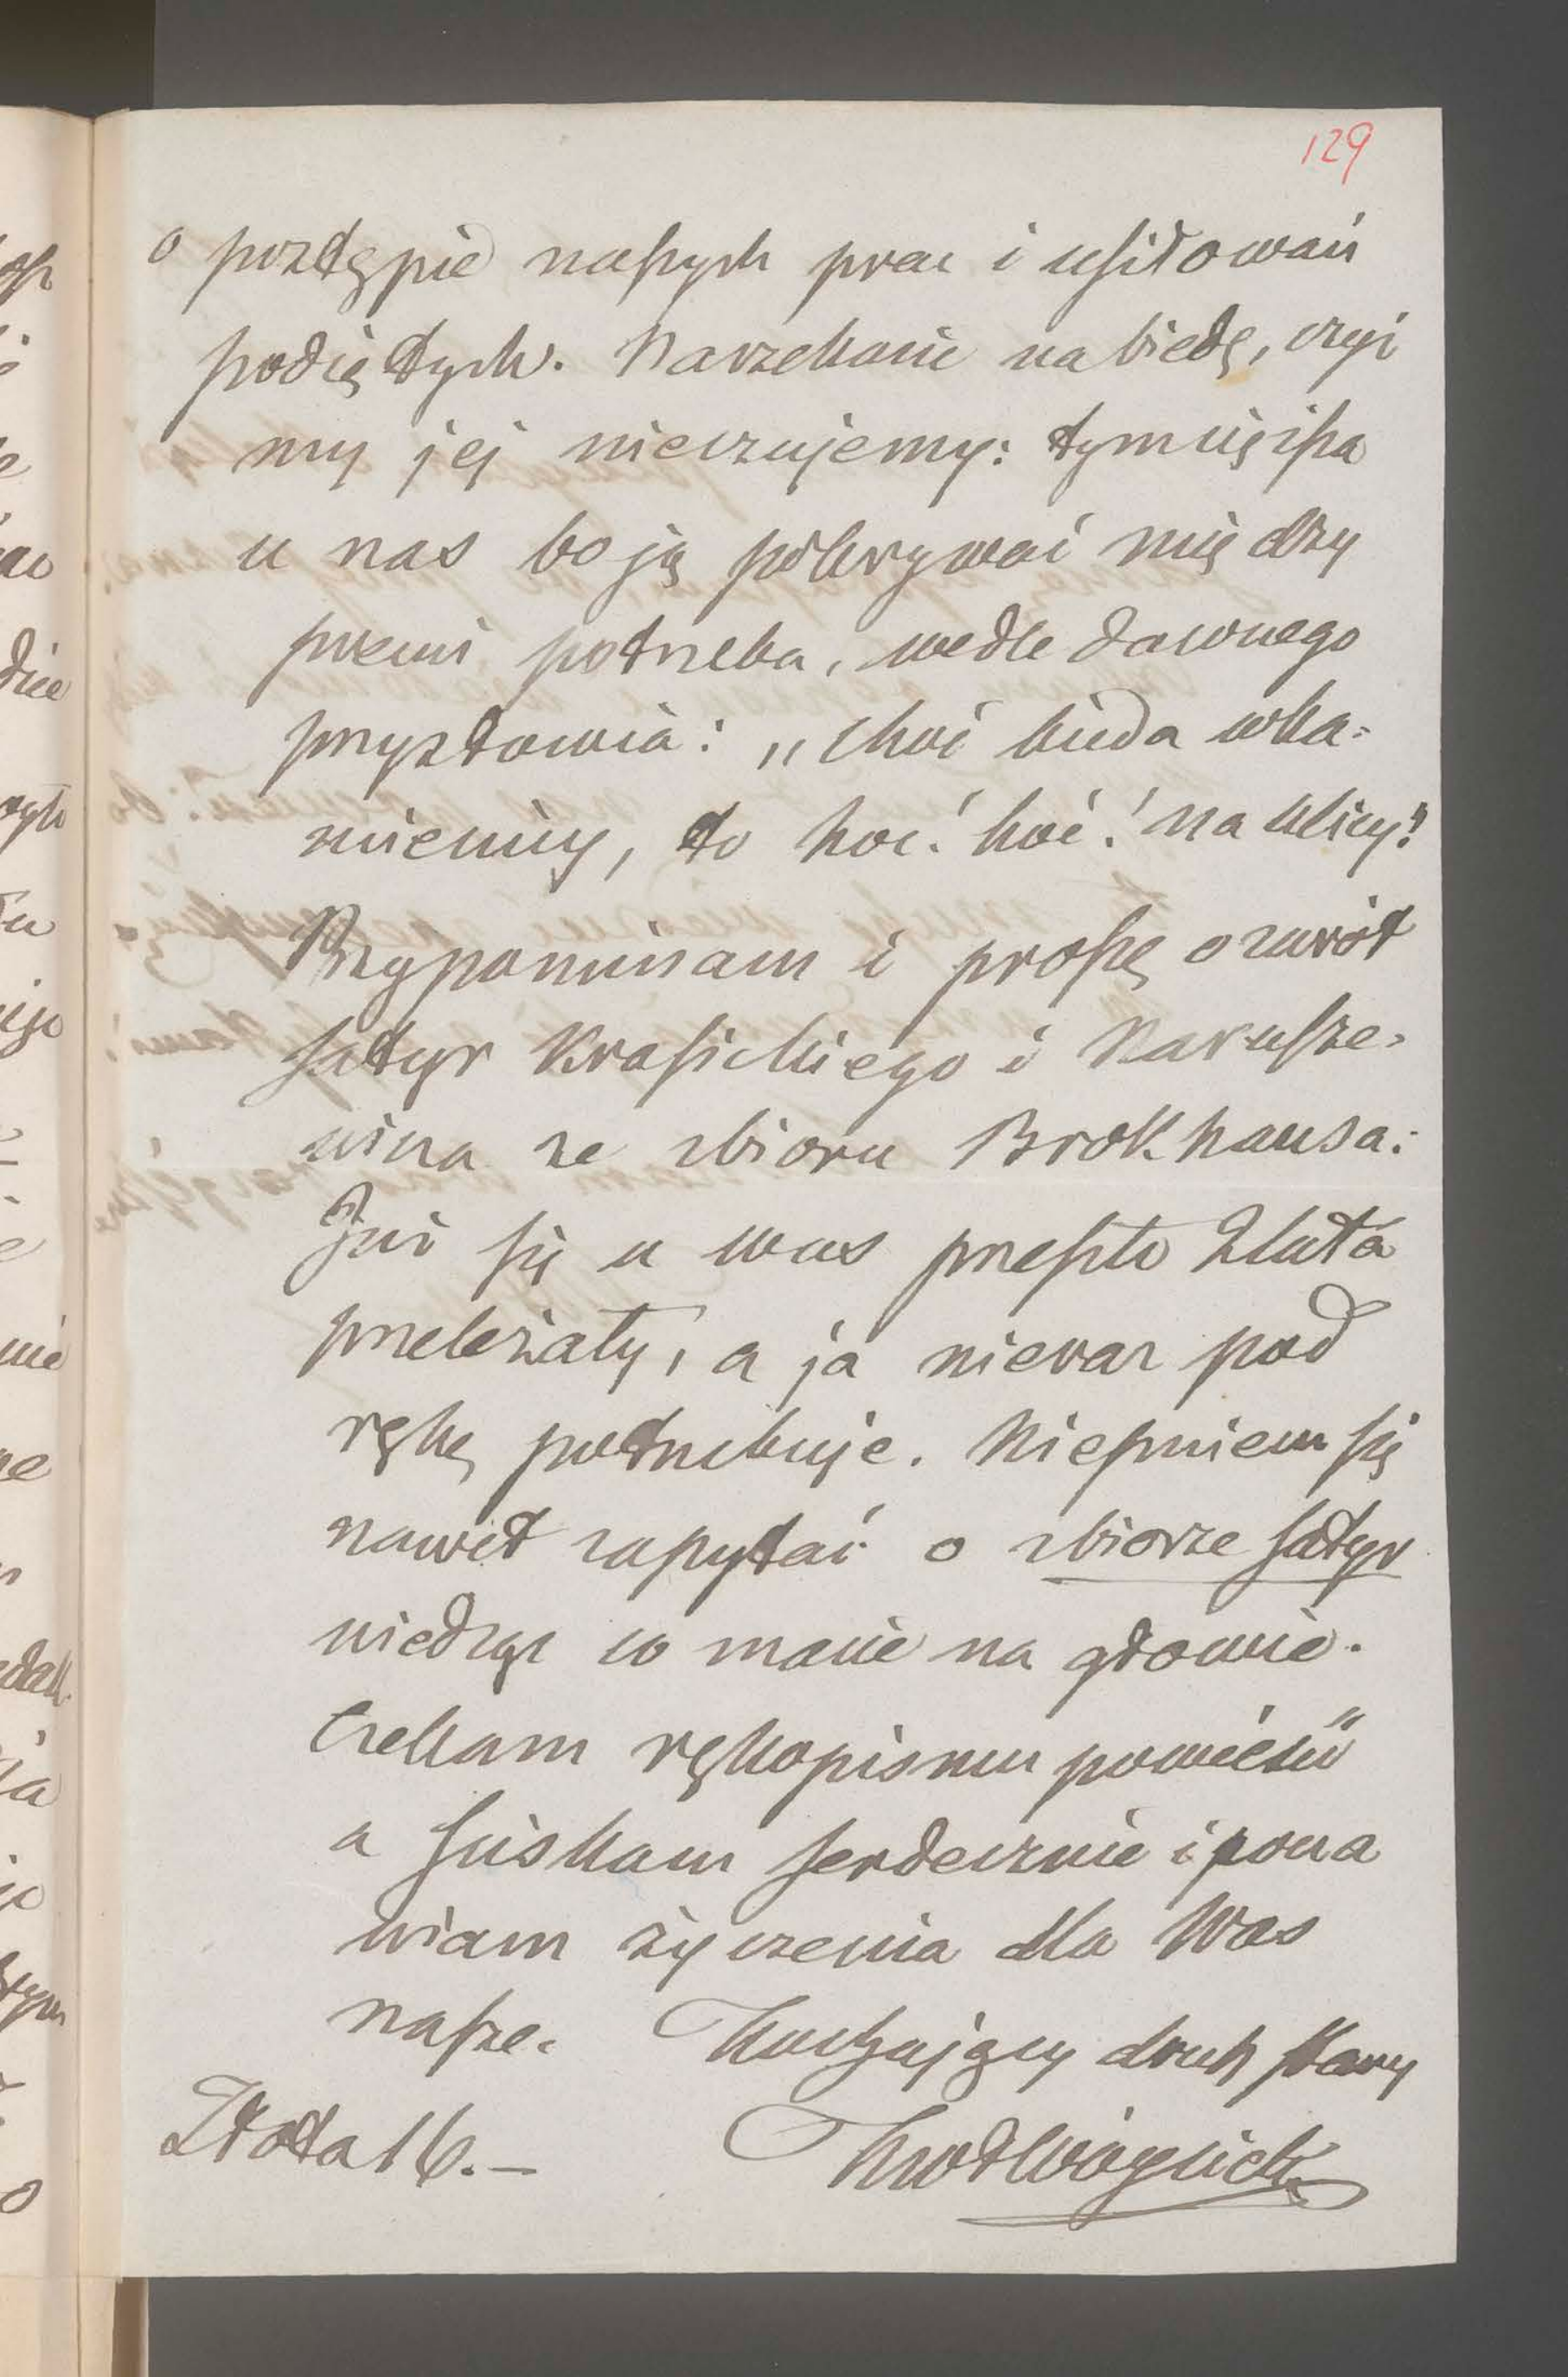 129
o postępie naszych prac i usiłowań
podiętych. Narzekanie na biedę, czyż
my jej nieczujemy: tym cięższa
u nas bo ją pokrywać między
potrzeba, wedle dawnego
przysłowia: „choć bieda wka=
mienicy, to hoć! hoć! na ulicy!"
Przypominam i proszę o zwrót
satyr Krasickiego i Narusze-
wicza ze zbioru Brokhausa:
Już się u was przeszło 2 lata
przeleżały, a ja nieraz pod
ręką potrzebuje. Nieśmiem się
nawet zapytać o zbiorze satyr
wiedząc co macie na głowie.
Czekam rękopismu powieści
a ściskam serdecznie i pona
wiam życzenia dla Was
nasze. Kochający druh stary
Złota 16.— KwWóycicki